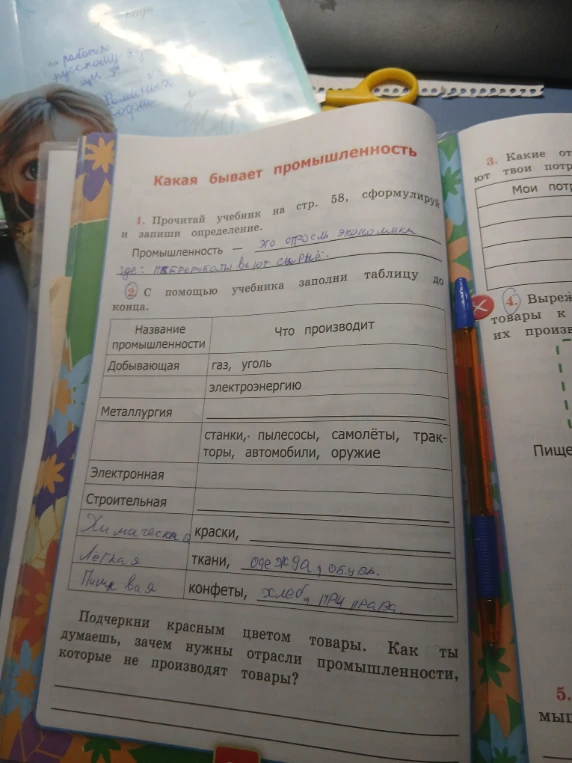 русскому
Какая бывает промышленность
1. Прочитай учебник на стр. 58, сформулируй
и запиши определение.
Промышленность — это отрасль экономики
где: перерабатывают сырьё.
2 С помощью учебника заполни таблицу до
конца.
Название
промышленности
Что производит
Добывающая газ, уголь
электроэнергию
Металлургия
станки, пылесосы, самолёты, трак-
торы, автомобили, оружие
Электронная
Строительная
Химическая краски,
Легкая ткани, одежда, обувь.
Пищевая конфеты, хлеб,
Подчеркни красным цветом товары. Как ты
думаешь, зачем нужны отрасли промышленности,
которые не производят товары?
3. Какие от
ют твои потр
Мои потр
4. Выреж
товары к
их произв
Пище
5.
мыш